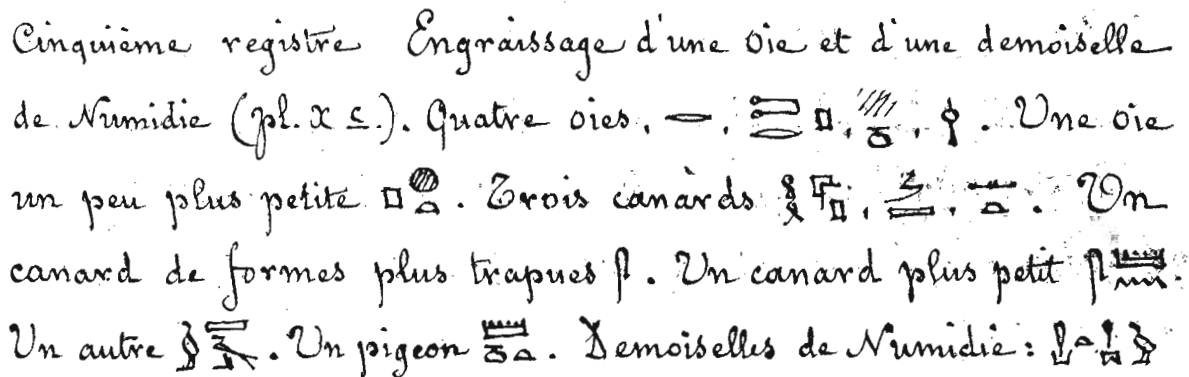 Cinquième registre Engraissage d'une oie et d'une demoiselle
de Numidie (pl. X c.). Quatre oies, , , , . Une oie
un peu plus petite . Trois canards , , . Un
canard de formes plus trapues . Un canard plus petit .
Un autre . Un pigeon . Demoiselles de Numidie :